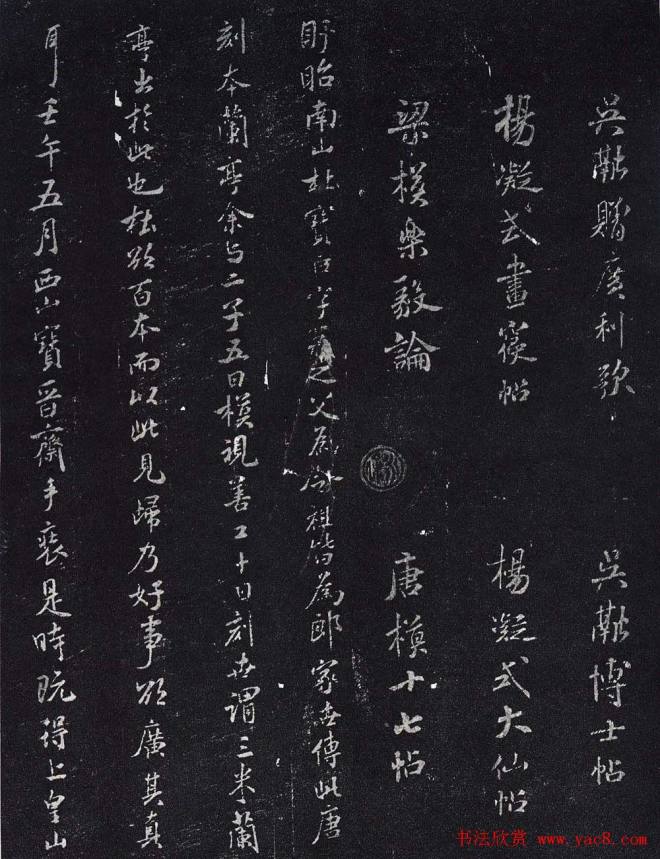 吳融贈廣利歌 吳融博士帖
楊凝式畫寢帖 楊凝式大仙帖
梁模樂毅論 唐模十七帖
盱眙南山杜寶臣字之父為祖皆為郎家世傳此唐
刻本蘭亭余与二子五日模視善工十日刻世謂三米蘭
亭出於此也杜欲百本而以此見歸乃好事欲廣其真
耳壬午五月西山寶晉齋手裝是時得上皇山
书法欣赏 www.yac8.com